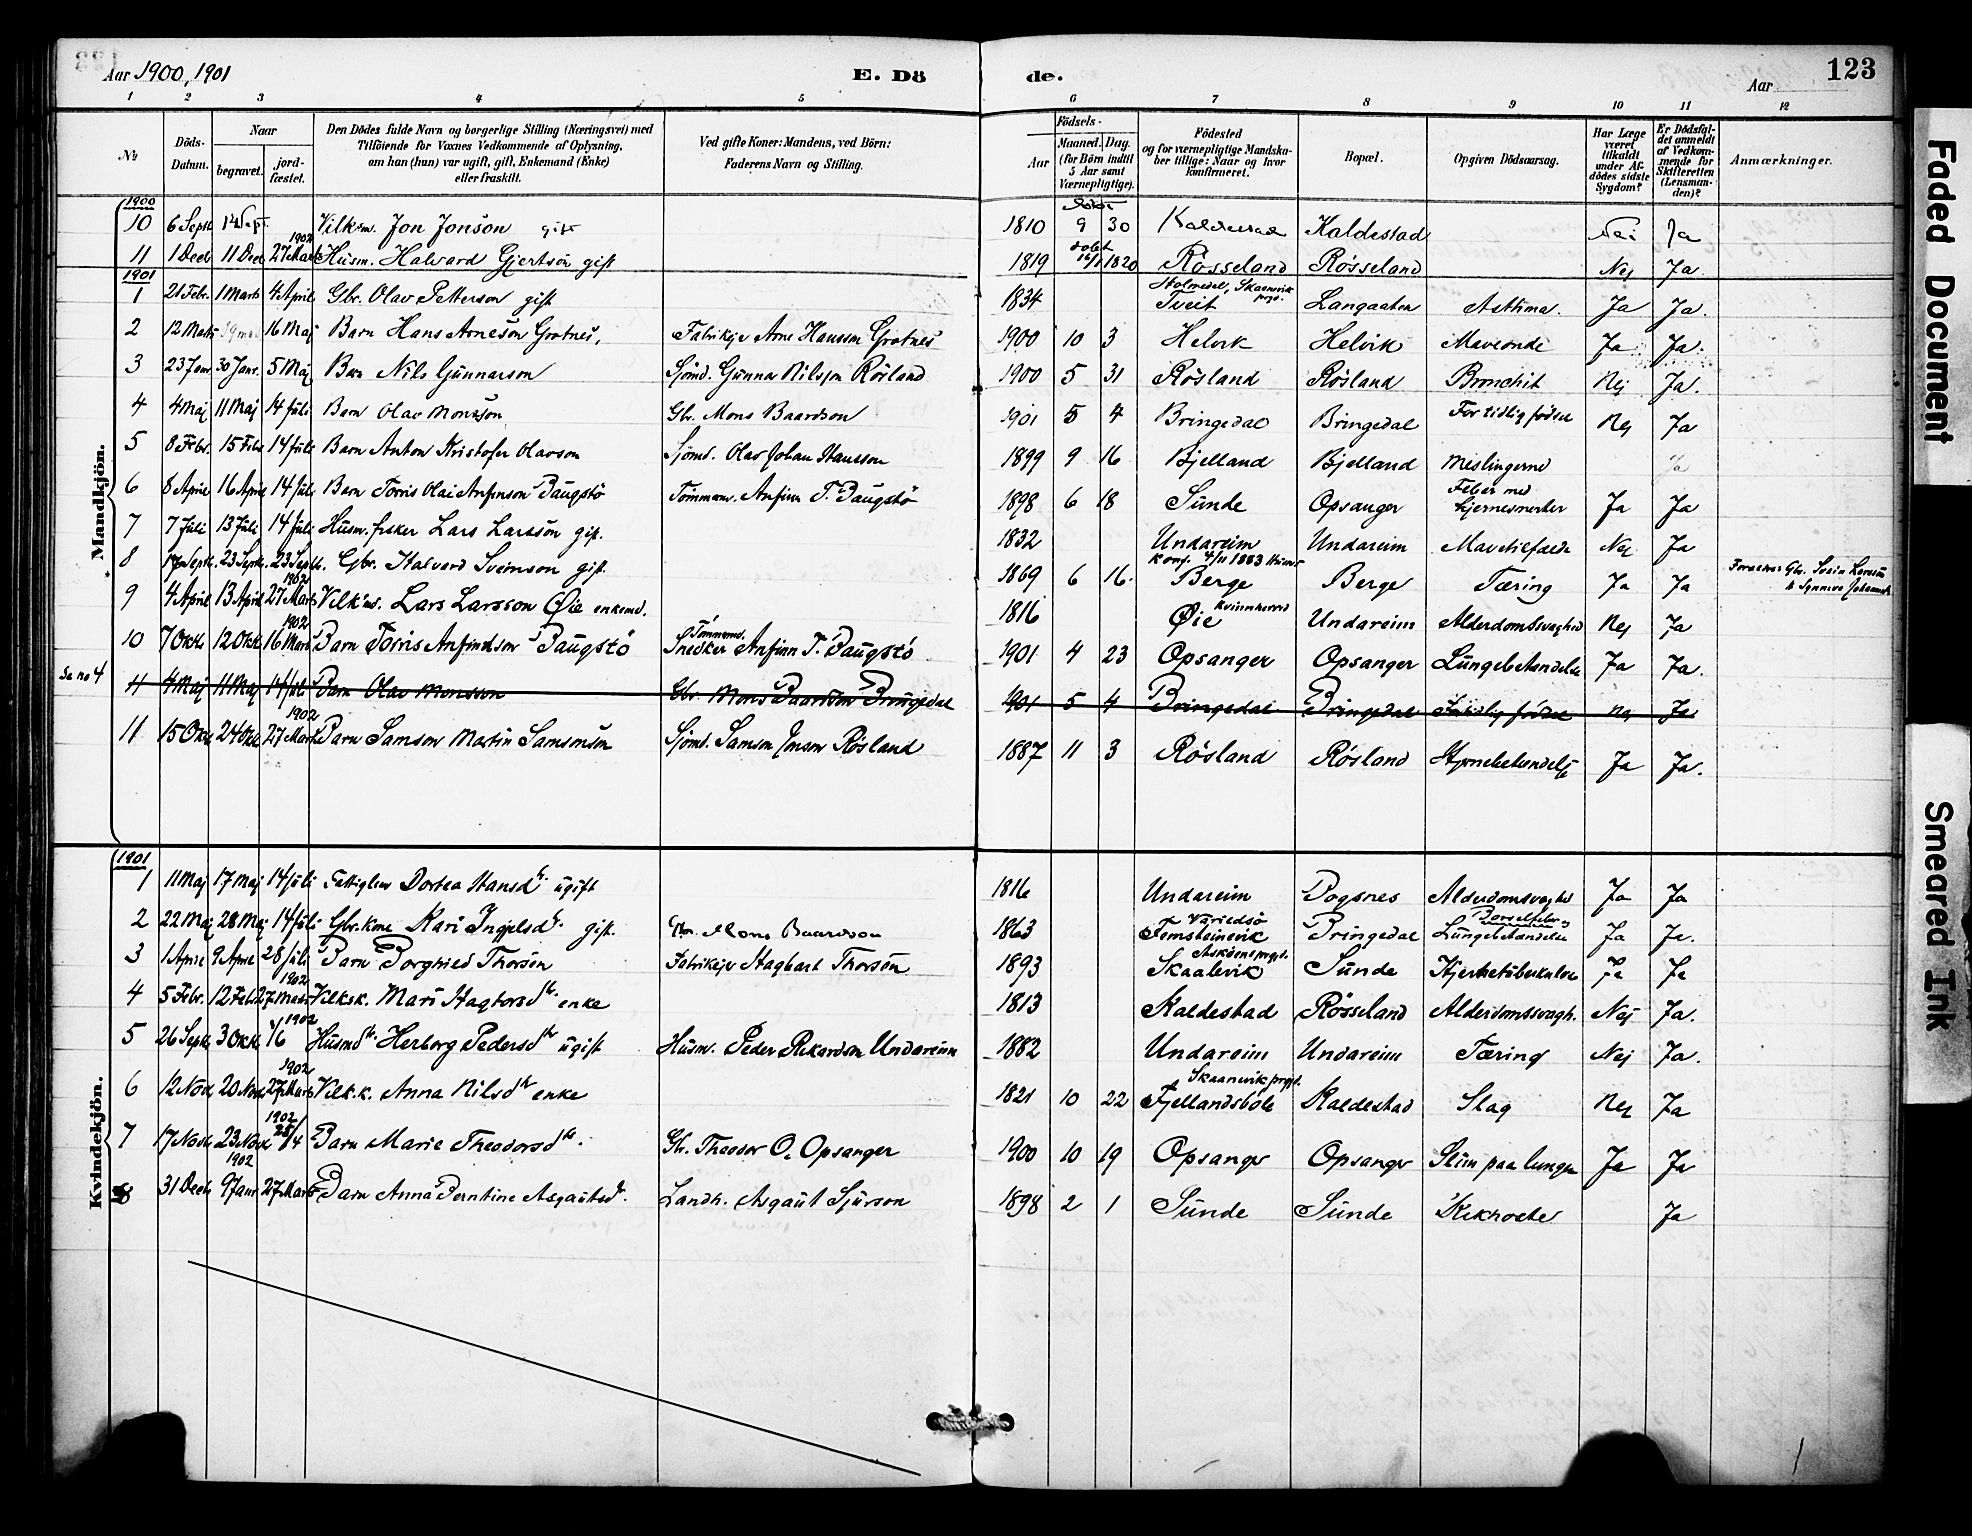 123
Aar 1900, 1901
E. Döde.
Aar
1 2 3 4 5 6 7 8 9 10 11 12
No
Döds-Datum.
Naar
begravet.
jordfæstet.
Den Dödes fulde Navn og borgerlige Stilling (Næringsvei) med
Tilföiende for Voxnes Vedkommende af Oplysning,
om han (hun) var ugift, gift, Enkemand (Enke)
eller fraskilt.
Ved gifte Koner: Mandens, ved Börn:
Faderens Navn og Stilling.
Födsels-
Aar
Maaned. Dag.
(for Börn indtil
5 Aar samt
Værnepligtige).
Födested
og for værnepligtige Mandskaber tillige: Naar og hvor
konfirmeret.
Bopæl.
Opgiven Dödsaarsag.
Har Læge
været
tilkaldt
under Afdödes sidste
Sygdom?
Er Dödsfaldet anmeldt
af Vedkommende for
Skifteretten
(Lensmanden)?
Anmærkninger.
Mandkjön.
1900
10 6 Septb 14 Sept. Vilk'm. Jon Jonson gift 1810 9 30 Kaldestad Kaldestad Nei Ja
11 1 Decb 11 Dec 27 Marts 1902 Husm. Halvard Gjertson gift 1819 döbt 16/1 1820 Rösseland Rösseland Nej Ja
1901
1 21 Febr. 1 Marts 4 April Gbr. Olav Petterson gift 1834 Holmedal, Skaanevik prgd. Tveit Langaaten Asthma. Ja Ja.
2 12 Marts 16 Maj Barn Hans Arneson Grotnes, Fabrikejer Arne Hansson Grotnes 1900 10 3 Helvik Helvik Maveonde Ja Ja.
3 23 Janr. 30 Janr. 5 Maj Barn Nils Gunnarson Sjömd. Gunnar Nilsson Rösland 1900 5 31 Rösland Rösland Bronchit Nej Ja.
4 4 Maj 11 Maj 14 Juli Barn Olav Monsson Gbr. Mons Baardson 1901 5 4 Bringedal Bringedal For tidlig födsel Nej Ja
5 8 Febr. 15 Febr 14 Juli Barn Anton Kristofer Olavson Sjömd. Olav Johan Hansson 1899 9 16 Bjelland Bjelland Meslingerne Ja
6 8 April 16 April 14 Juli Barn Torris Olai Anfinson Baugstö Tömmerm. Anfinn T. Baugstö 1898 6 18 Sunde Opsanger Feber med hjernesmerter Ja Ja
7 7 Juli 13 Juli 14 Juli Husm. fisker Lars Larsson gift. 1832 Undareim Undareim Mavetilfælde Nej Ja
8 17 Septb. 23 Septb. 23 Septb. Gbr. Halvard Sveinson gift. 1869 6 16. Konf. 4/11 1883 Berge Berge Tæring Ja Ja Forældre Gbr. Svein Larsson & Synneva
9 4 April 13 April 27 Marts 1902 Vilk'md. Lars Larsson Øie enkemd. 1816 Kvinnherred Øie Undareim Alderdomssvaghed Nej Ja
10 7 Oktb 12 Oktb 16 Marts 1902 Barn Torris Anfindson Baugstö Tömmermd. Snedker Anfinn T. Baugstö 1901 4 23 Opsanger Opsanger Lungebetændelse Ja Ja.
Se no 4 11 4 Maj 11 Maj 14 Juli Barn Olav Monsson Gbr. Mons Baardson Bringedal 1901 5 4 Bringedal Bringedal Fortidlig födsel Nej Ja
11 15 Oktb 24 Oktb 27 Marts 1902 Barn Samson Martin Samsonson Sjömd. Samson Jonson Rösland 1887 11 3 Rösland Rösland Hjernebetændelse Ja Ja.
Kvindekjön.
1901
1 11 Maj 17 Maj 14 Juli Fattiglem Dortea Hansdtr. ugift 1816 Undareim Bogsnes Alderdomssvaghed Ja Ja
2 22 Maj 28 Maj 14 Juli Gbr. kone Kari Ingjelsdtr. gift. Gbr. Mons Baardson 1863 Varaldsö Femsteinevik Bringedal Barselfeber og Lungebetændelse Ja Ja.
3 1 April 9 April 28 Juli Barn Borghied Thorsen Fabrikejer Hagbart Thorsen 1893 Asköens prgd. Skaalevik Sunde Hjertetuberkulose Ja Ja
4 5 Febr. 12 Feb. 27 Marts 1902 Vilk'sk. Mari Hagtorsdtr. enke 1813 Kaldestad Rösseland Alderdomssvagh. Nej Ja.
5 26 Septb 3 Oktb 1/6 1902 Husmdtr. Herborg Pedersdtr. ugift Husm. Peder Rikardson Undareim 1882 Undareim Undareim Tæring Nej Ja.
6 12 Novb 20 Novb 27 Marts 1902 Vilk.k. Anna Nilsdtr. enke 1821 10 22 Skaanevik prgd. Fjellandsböle Kaldestad Slag Nej Ja
7 17 Novb 23 Novb 25/4 1902 Barn Marie Theodorsdtr. Gbr. Theodor O. Opsanger 1900 10 19 Opsanger Opsanger Slim paa lungen Ja Ja
8 31 Decb 9 Janr 1902 27 Marts Barn Anna Berntine Asgautsdtr. Landh. Asgaut Sjurson 1898 2 1 Sunde Sunde Kikhoste Ja
Faded Document
Smeared Ink